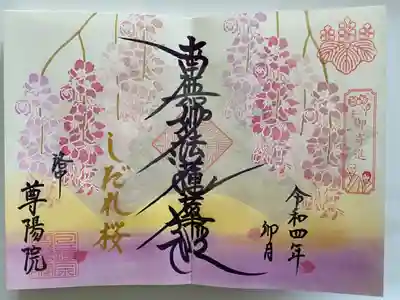 令和四年
卯月
南無妙法蓮華経
しだれ桜
洛中
尊陽院